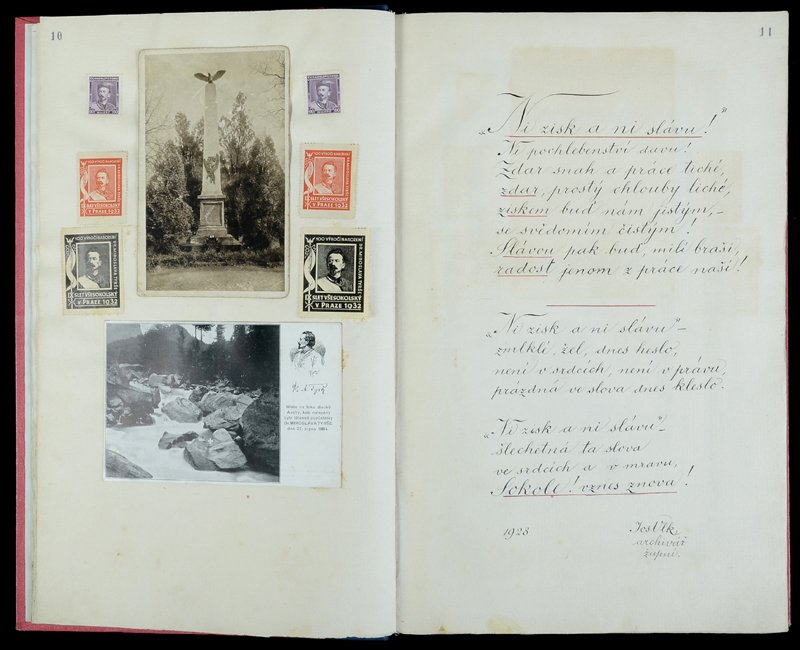 10
100 VÝROČÍ NAROZENÍ
DR. MIROSLAVA TYRŠE
IX. SLET VŠESOKOLSKÝ
V PRAZE 1932
100 VÝROČÍ NAROZENÍ
DR. MIROSLAVA TYRŠE
IX. SLET VŠESOKOLSKÝ
V PRAZE 1932
100 VÝROČÍ NAROZENÍ
DR. MIROSLAVA TYRŠE
IX. SLET VŠESOKOLSKÝ
V PRAZE 1932
100 VÝROČÍ NAROZENÍ
DR. MIROSLAVA TYRŠE
IX. SLET VŠESOKOLSKÝ
V PRAZE 1932
Místo na toku dravé
Aachy, kde nalezeny
byly tělesné pozůstatky
Dr. MIROSLAVA TYRŠE
dne 21. srpna 1884.
11
„Ni zisk a ni slávu!“
Ni pochlebenství davu!
Zdar snah a práce tiché,
zdar, prostý chlouby liché,
ziskem buď nám jistým, –
se svědomím čistým!
Slávou pak buď, milí braší,
radost jenom z práce naší!
„Ni zisk a ni slávu“ –
zmlklé, žel, dnes heslo,
není v srdcích, není v právu,
prázdná ve slova dnes kleslo.
„Ni zisk a ni slávu“ –
šlechetná ta slova
ve srdcích a v mravu,
Sokole! vznes znova!
1928
Jos Vlk,
archivář
župní.